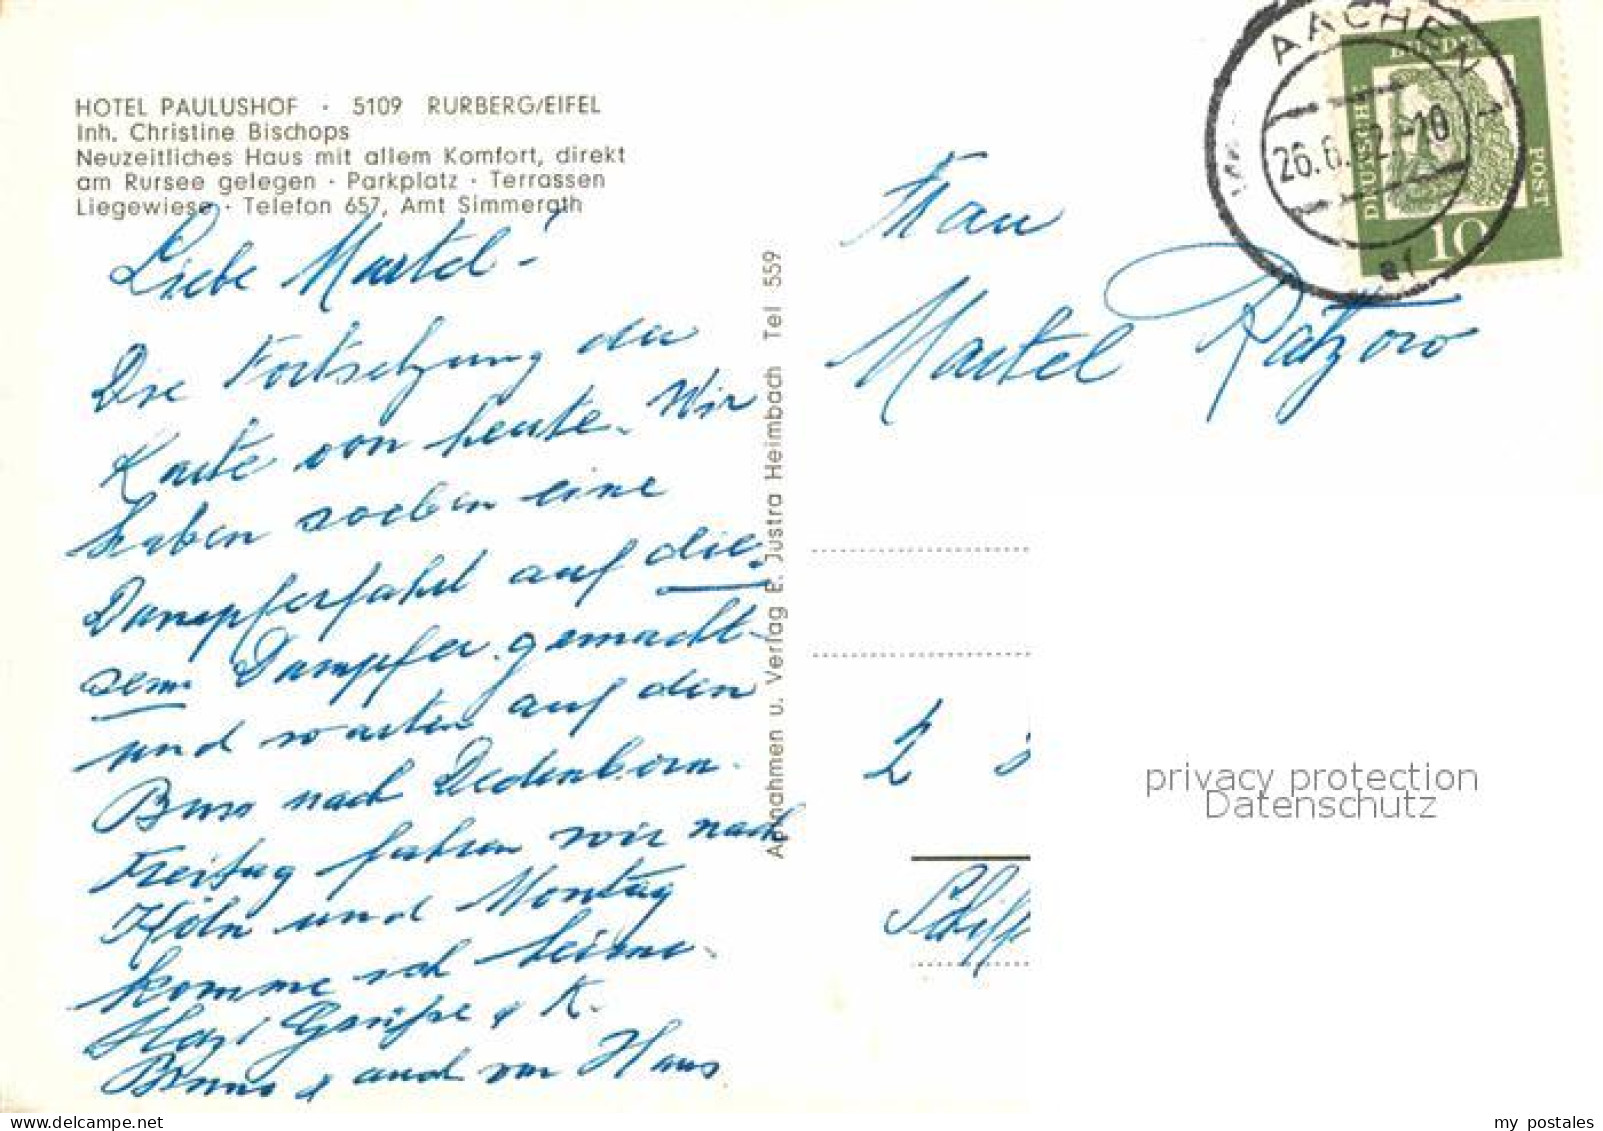 HOTEL PAULUSHOF · 5109 RURBERG/EIFEL
Inh. Christine Bischops
Neuzeitliches Haus mit allem Komfort, direkt
am Rursee gelegen · Parkplatz · Terrassen
Liegewiese · Telefon 657, Amt Simmerath
Liebe Martel!
Die Fortsetzung der
Karte von heute. Wir
haben soeben eine
Dampferfahrt auf die-
sem Dampfer gemacht
und warten auf den
Bus nach Dedenborn.
Freitag fahren wir nach
Köln und Montag
komme ich heim.
Herzl Grüße & K.
Bruno & auch von Hans
Aufnahmen u. Verlag E. Justra Heimbach Tel 559
AACHEN 1
26.6.62.-10
DEUTSCHE
BUNDES
POST
10
Frau
Martel Ratzow
2
Schiff
privacy protection
Datenschutz
my postales